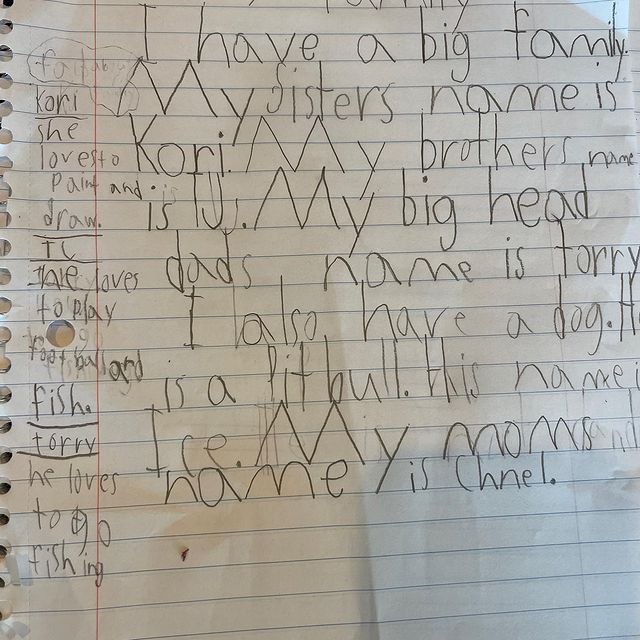 I have a big family.
My sisters name is
Kori. My brothers name
is TJ. My big head
dads name is Torry
I also have a dog. H
is a Pitbull. this name i
Ice. My moms
name is Chnel.
kori
she
loves to
Paint and
draw.
he loves
to play
football and
fish.
torry
he loves
to go
fishing